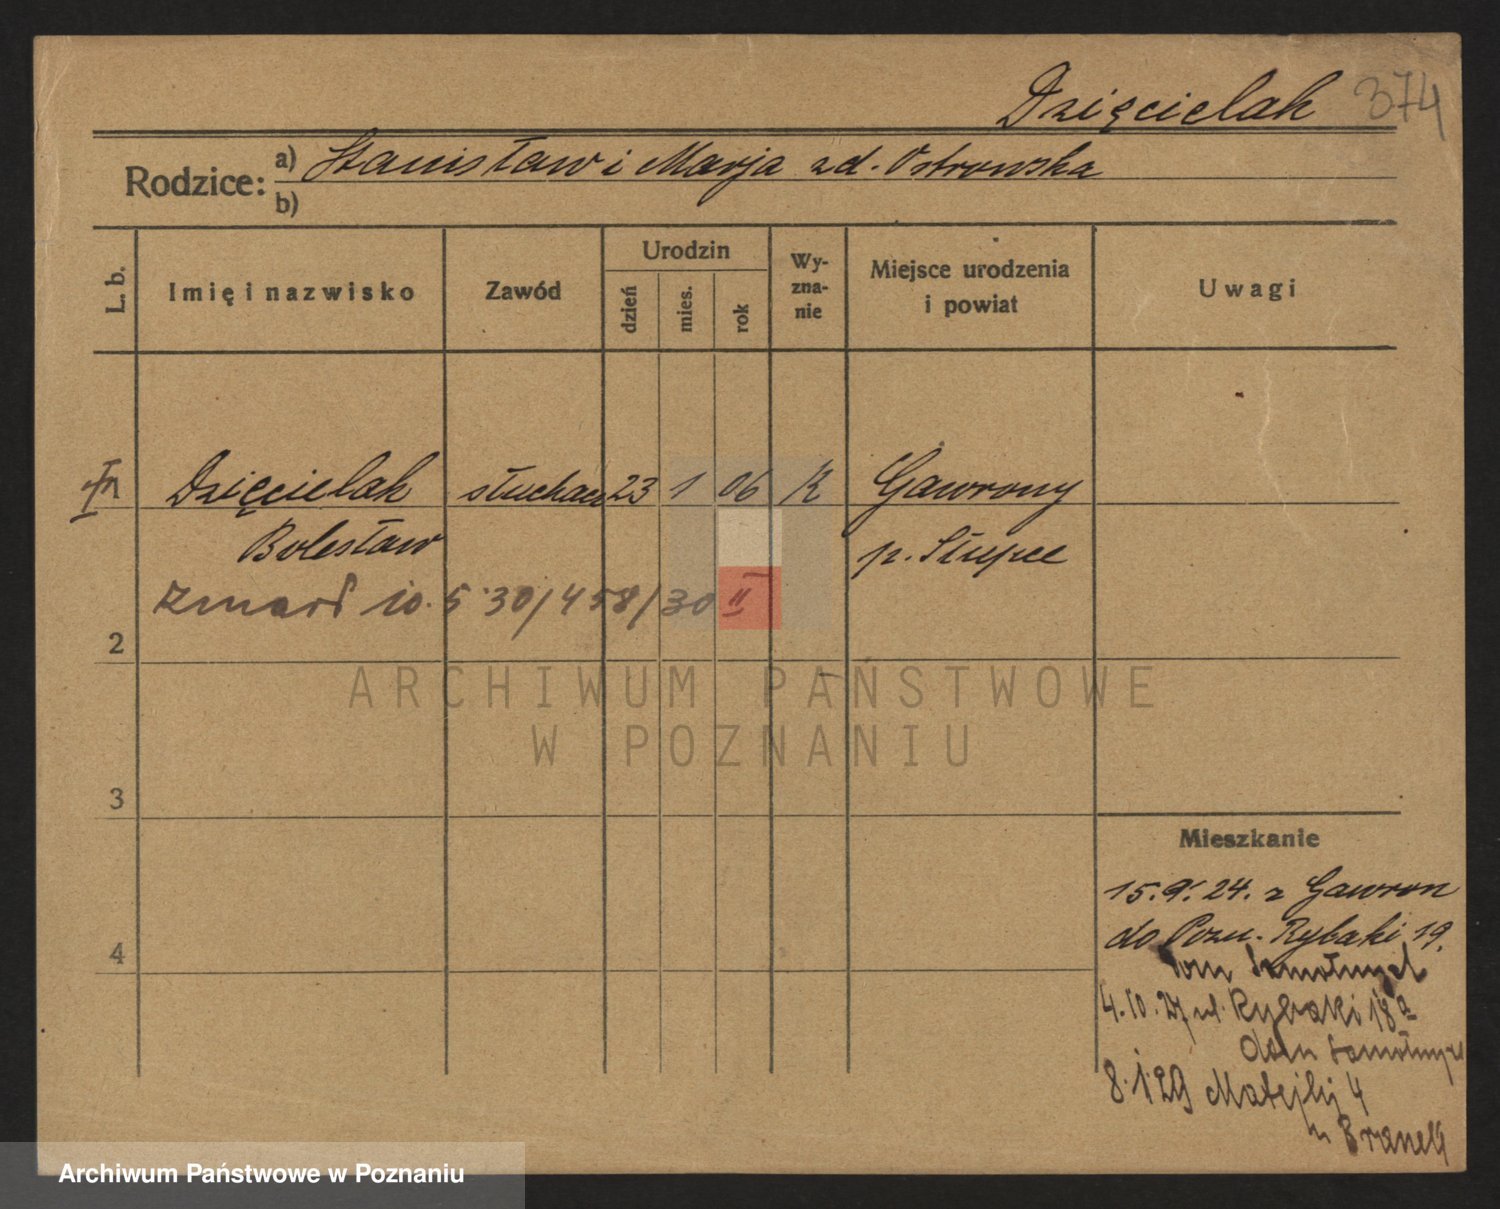 Dzięcielak 374
Rodzice: a) Stanisław i Marja zd. Ostrowska
b)
L. b.
Imię i nazwisko
Zawód
Urodzin
dzień
mies.
rok
Wy-
zna-
nie
Miejsce urodzenia
i powiat
Uwagi
Dzięcielak słuchacz 23 1 06 K Gawrony
Bolesław p. Słupce
zmarł 10. 5 30/458/30 II
2
3
4
Mieszkanie
15. 9. 24. z Gawron
do Pozn. Rybaki 19.
dom
4. 10. 27 ul. Rybaki 18a
dom
8. 1. 29 Matejki 4
ARCHIWUM PAŃSTWOWE
W POZNANIU
Archiwum Państwowe w Poznaniu